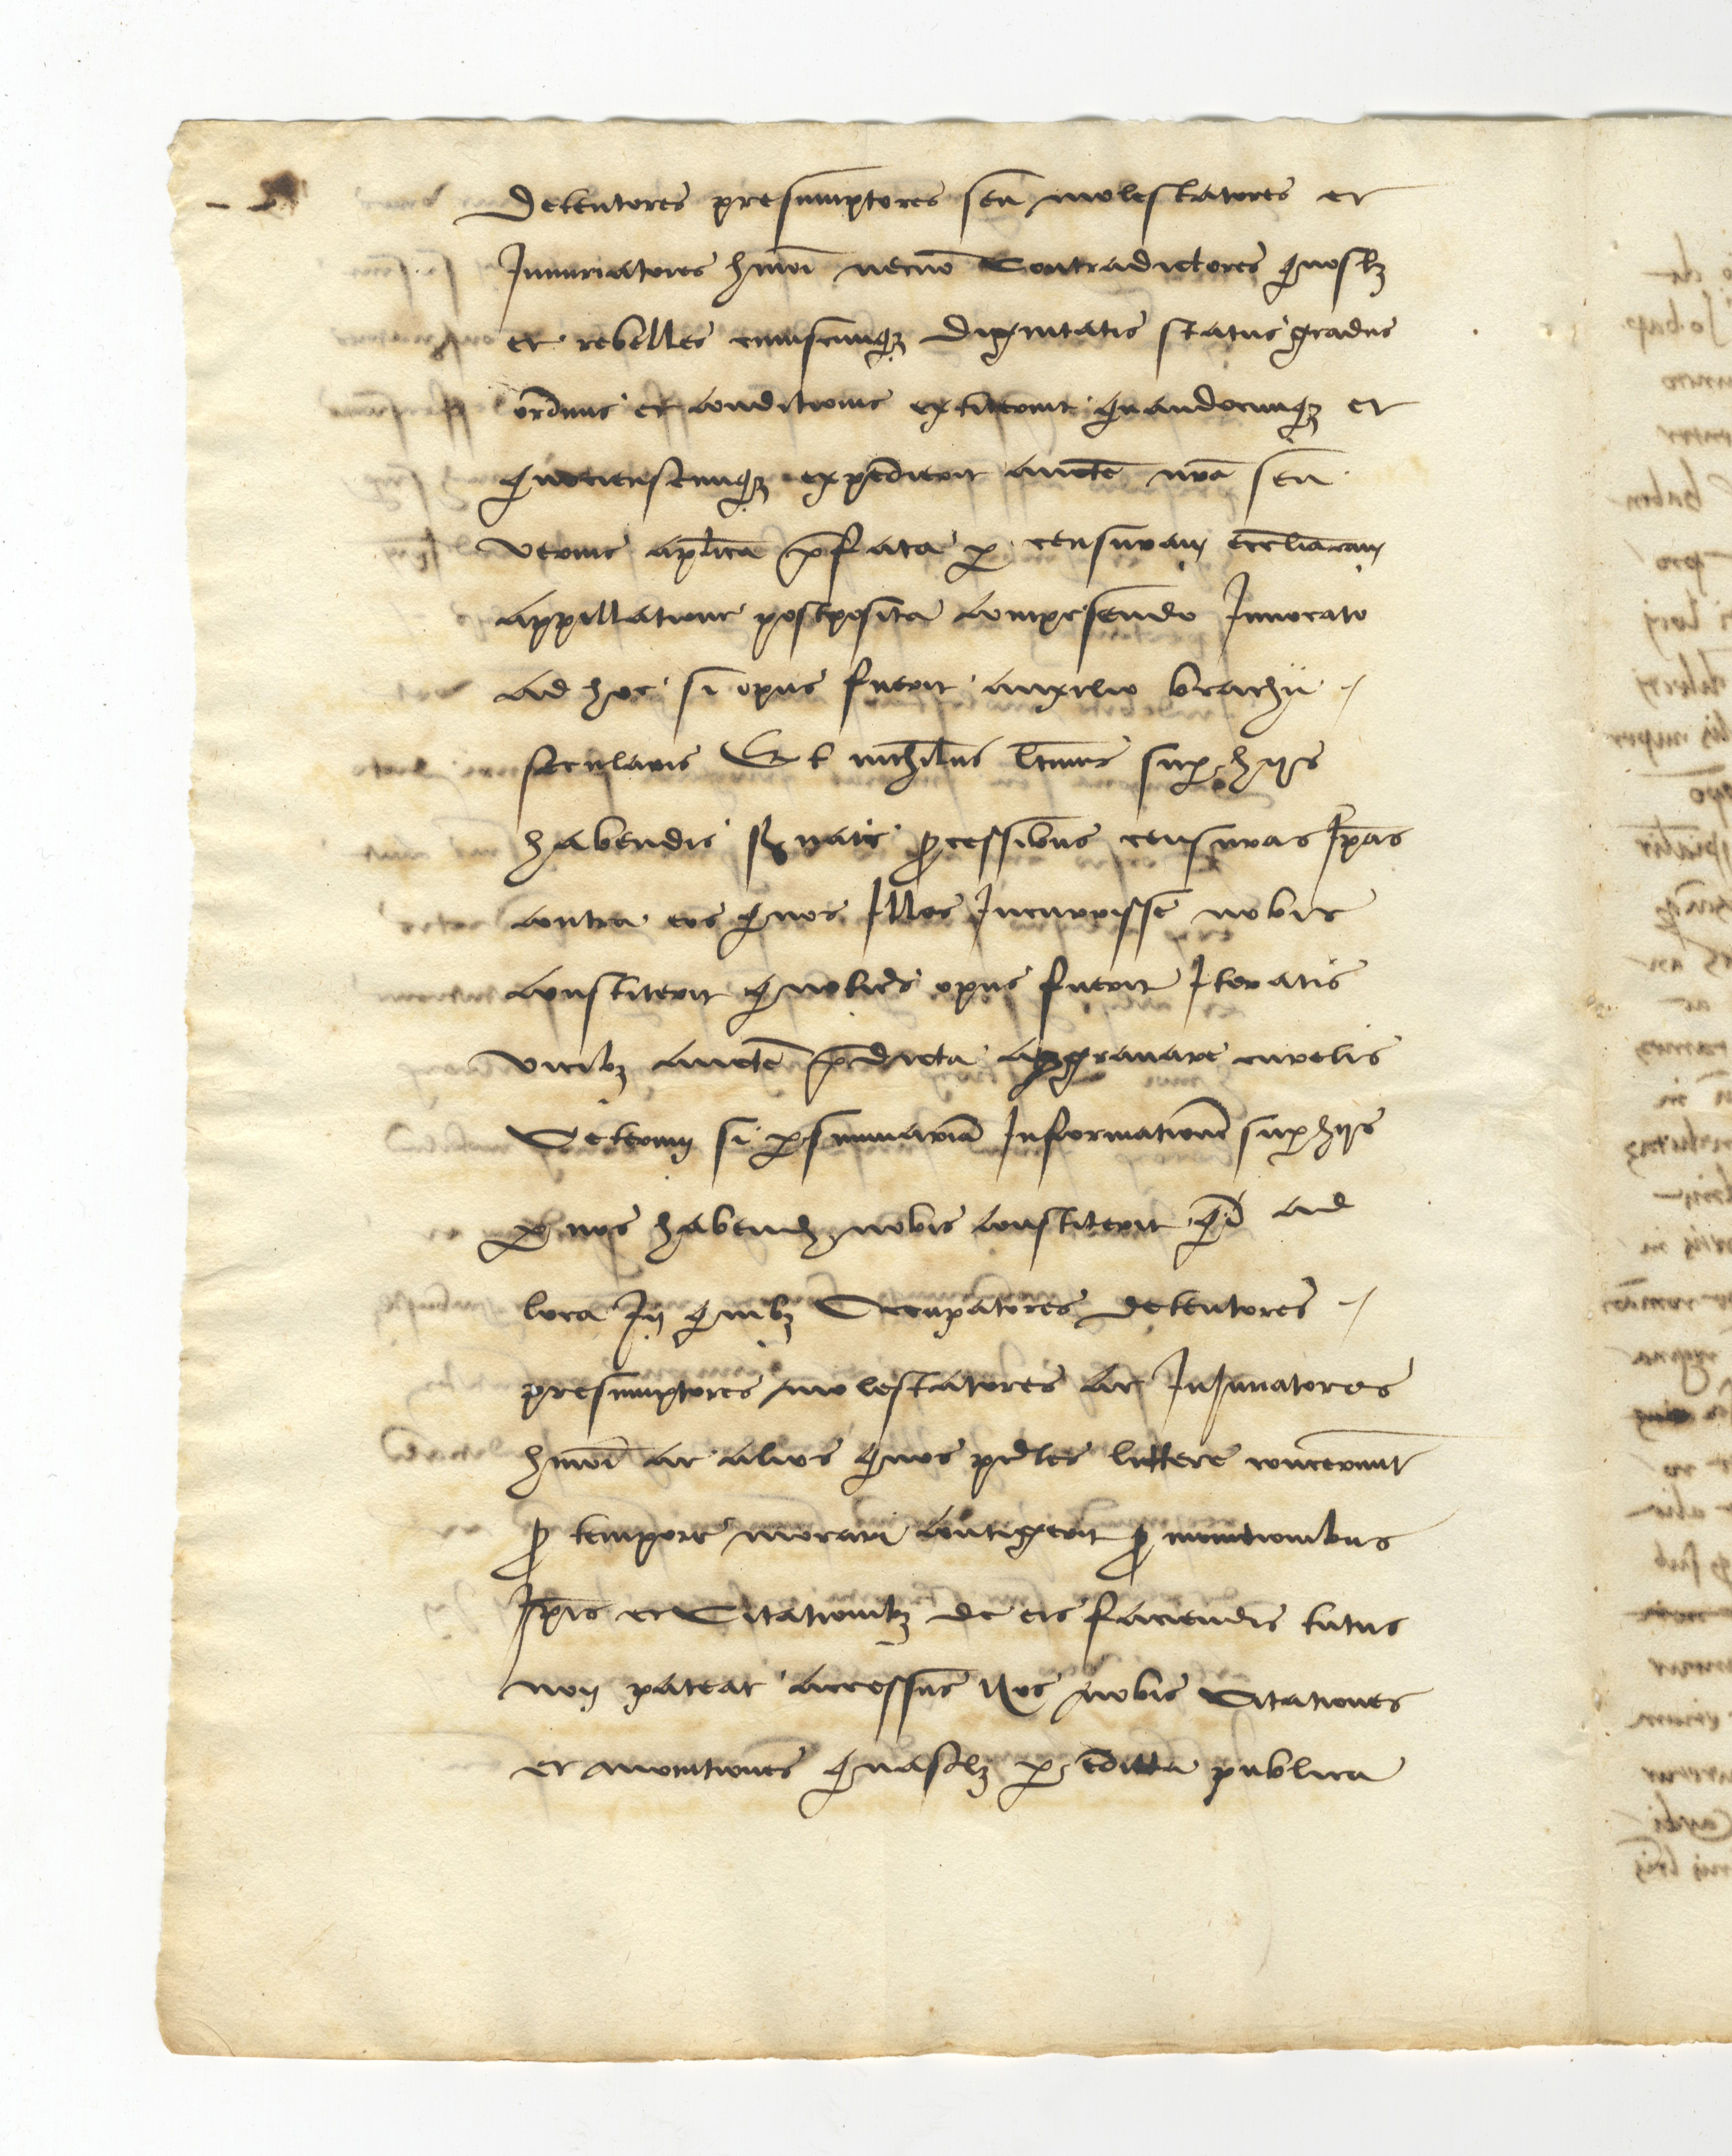 Detentores presumptores seu molestatores et
Iniuriatores hmoi necno Contradictores quoslz
et rebelles cuiuscunqz dignitatis status gradus
ordinis et conditionis extiterint quandocunqz et
quotienscunqz expedierit aucte nra seu
verius aplica pfata p censuram eccliaticam
appellatione postposita compescendo Inuocato
ad hoc si opus fuerit auxilio brachij
secularis Et nichilus ltimis sup hijs
habendis seruatis pcessibus censuras Ipas
contra eos quos Illas Incurrisse nobis
constiterit quotiens opus fuerit Iteratis
vicibz aucte pdicta aggrauare curetis
Ceterum si p summaria Informatione sup hijs
p nos habendz nobis constiterit qd ad
loca In quibz Occupatores detentores
presumptores molestatores ac Iniuriatores
hmoi ac alios quos pntes littere concernunt
p tempore morari contigerit p monitionibus
Ipis et Citationibz de eis faciendis tutus
non pateat accessus Nos nobis Citationes
et monitiones quaslz p edicta publica